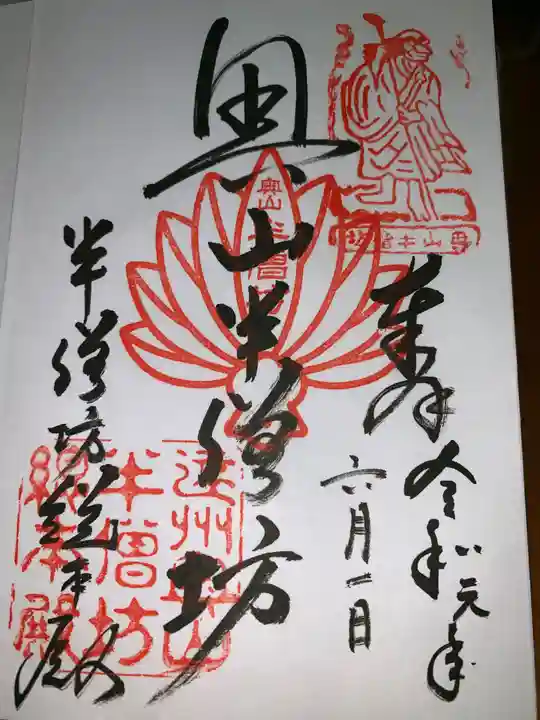 奉拝
令和元年
六月一日
奥山半僧坊
半僧坊総本殿
奥山半僧坊
遠州奥山
半僧坊
総本殿